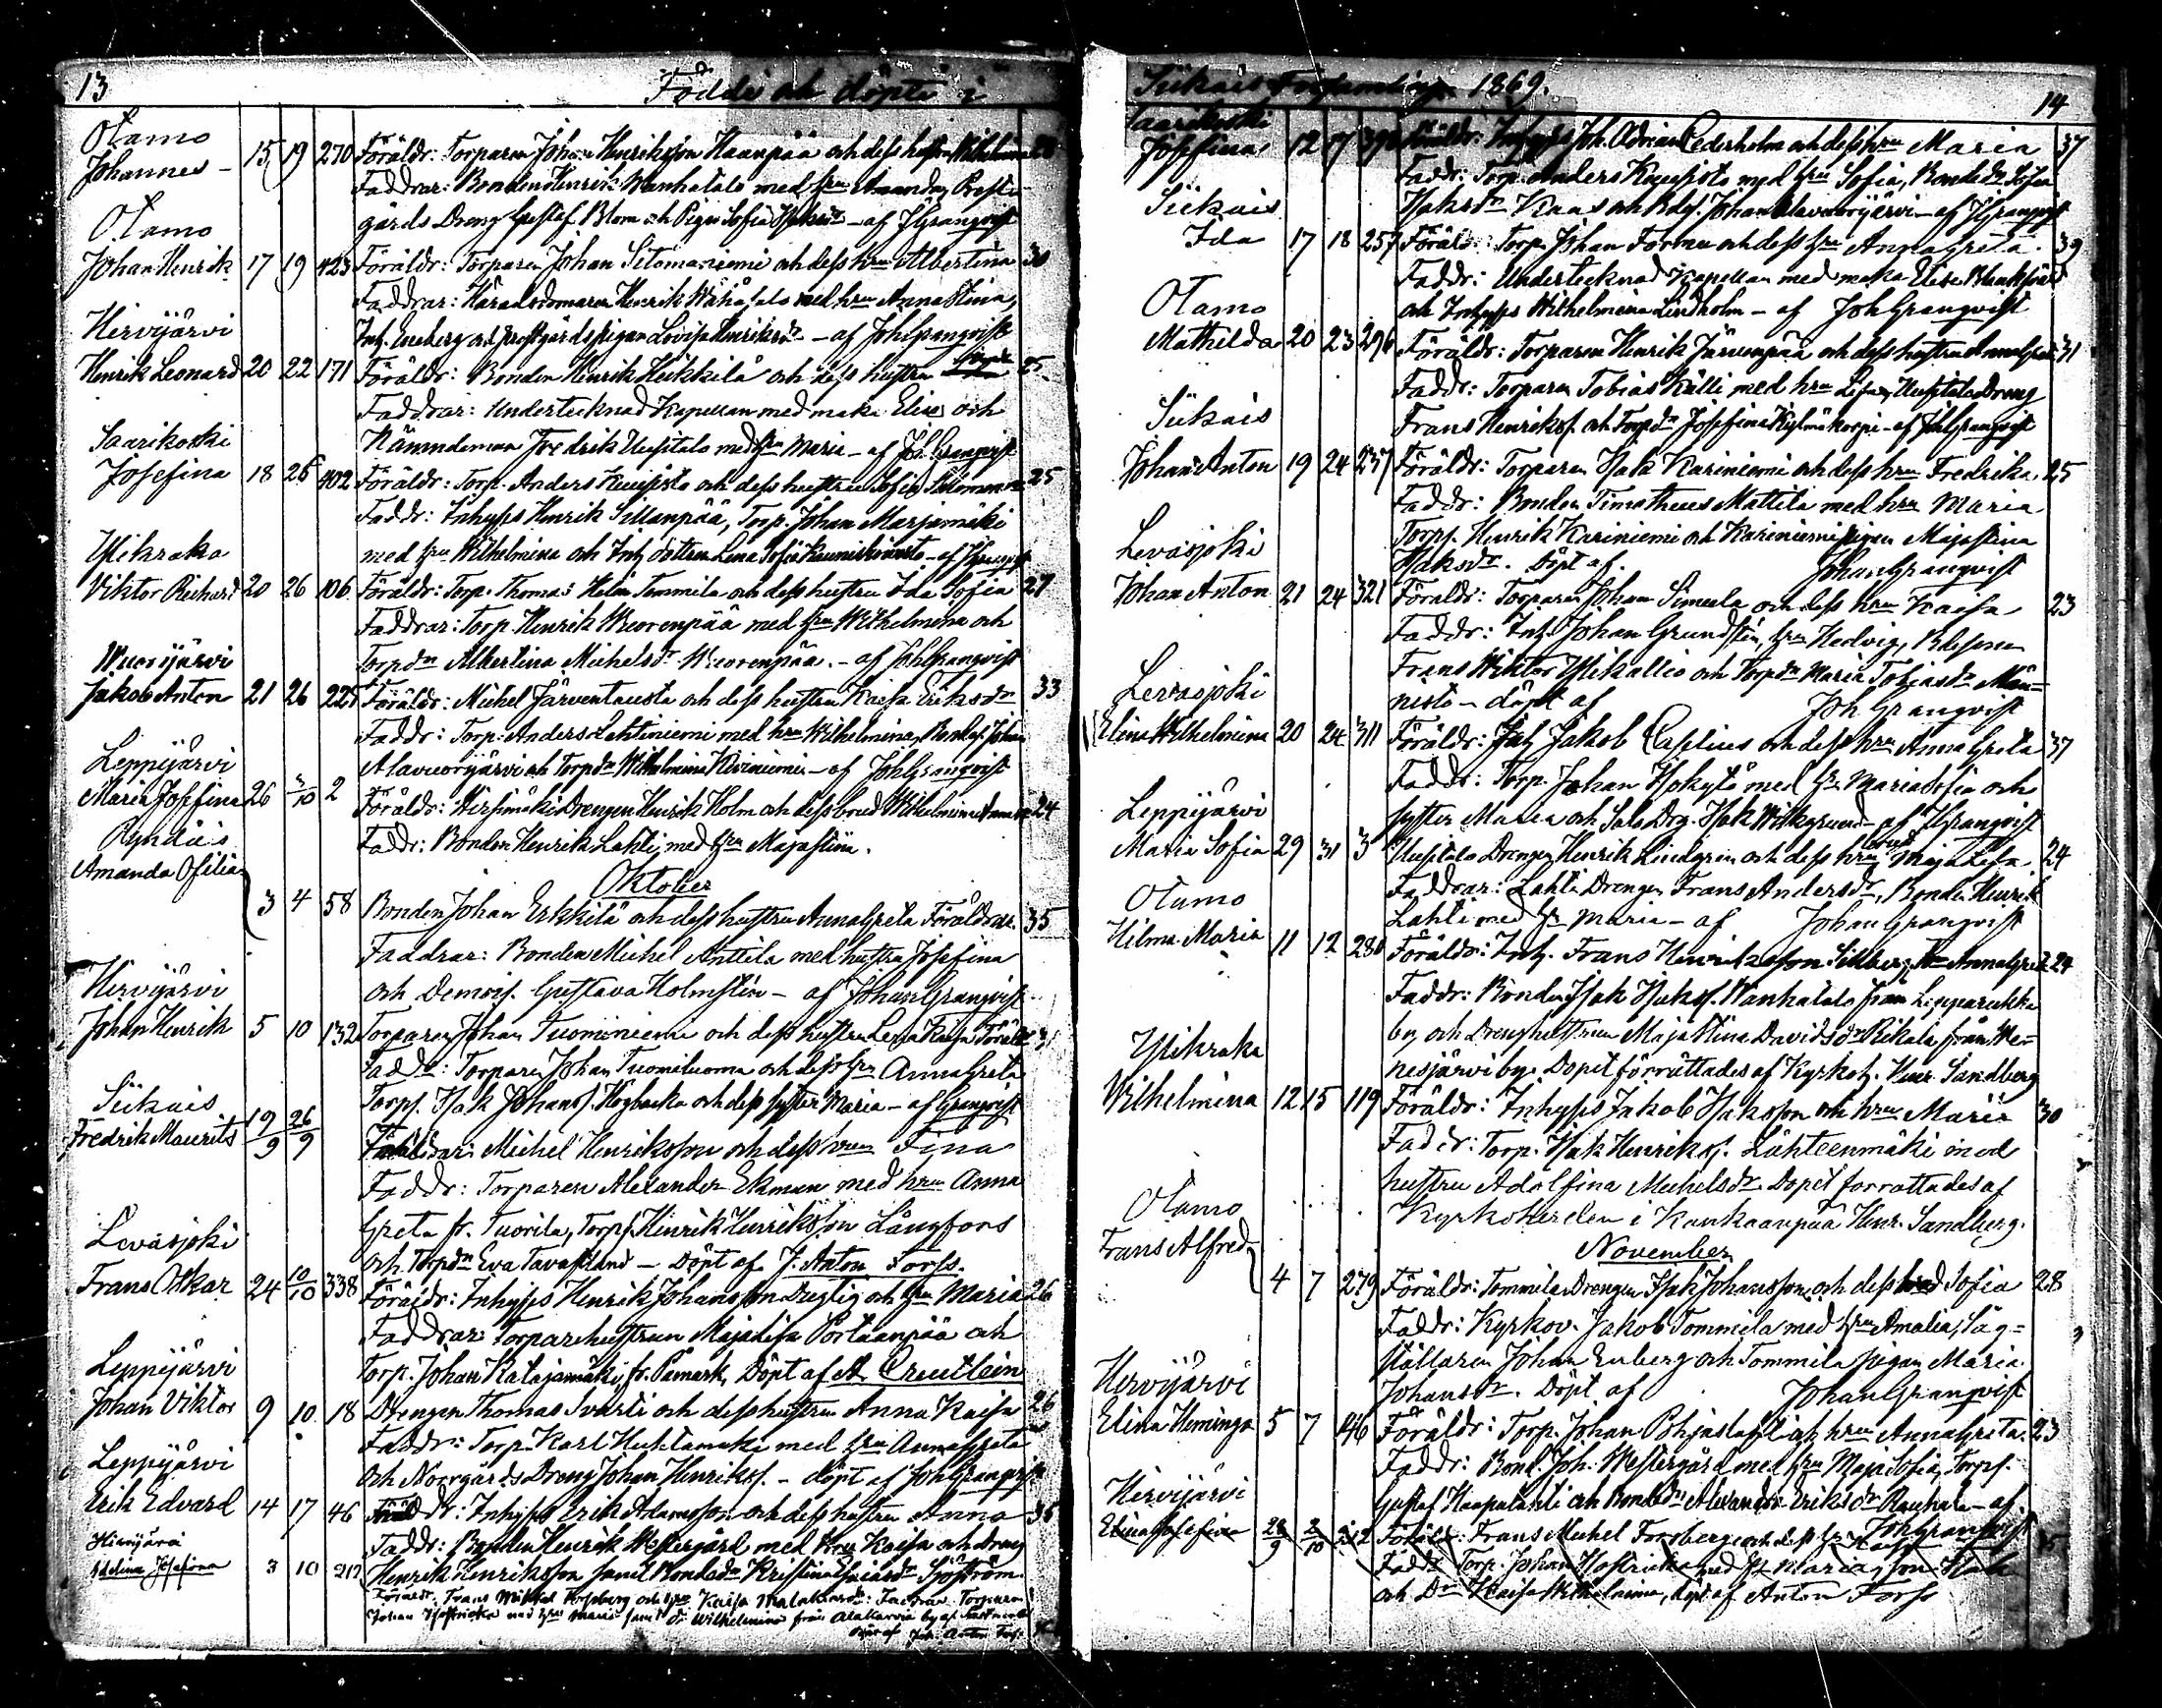 13
Födde och döpte i
Otamo
Johannes - 15 19 270 Föräldr: Torparen Johan Henriksson Haanpää och dess hustru Wilhelmina 28
Faddrar: Bonden Henrik Wanhatalo med hru Amanda, Prest-
gårds Dreng Gustaf Blom och Pigan Sofia - af JGranqvist
Otamo
Johan Henrik 17 19 423 Föräldr: Torparen Johan Sitomaniemi och dess hru Albertina 30
Faddrar: Häradsdomaren Henrik Wähätalo med hru Anna Stina,
Inh. Eneberg och prestgårdspigan Lovisa Henriksdr - af JohGranqvist
Hirvijärvi
Henrik Leonard 20 22 171 Föräldr: Bonden Henrik Heikkilä och dess hustru
Faddrar: Undertecknad Kapellan med maka Elise och
Nämndeman Fredrik Uusitalo med hru Maria - af Joh Granqvist
Saarikoski
Josefina 18 26 402 Föräldr: Torp. Anders Kuusisto och dess hustru Sofia 25
Faddr: Inhyses Henrik Sillanpää, Torp. Johan Marjamäki
med hru Wilhelmina och Inh dottren Lena Sofia - af JGranqvist
Ylikraka
Viktor Richard 20 26 106 Föräldr: Torp. Thomas Helin Tommila och dess hustru Ida Sofia 27
Faddrar: Torp. Henrik Wuorenpää med hru Wilhelmina och
Torpdn Albertina Michelsdr Wuorenpää. - af JohGranqvist
Wuorijärvi
Jakob Anton 21 26 228 Föräldr: Michel Järventausta och dess hustru Kaisa Eriksdr 33
Faddr: Torp. Anders Lahtiniemi med hru Wilhelmina, Bondes. Johan
Alavuorijärvi och Torpdn Wilhelmina Kiviniemi - af JohGranqvist
Leppijärvi
Maria Josefina 26 3/10 2 Föräldr: Hirsimäki Drengen Henrik Holm och dess brud Wilhelmina 24
Faddr: Bonden Henrik Lahti, med hru Majastina.
Oktober
Amanda Ofilia
3 4 58 Bonden Johan Erkkilä och dess hustru Anna Greta Föräldrar. 35
Faddrar: Bonden Michel Anttila med hustru Josefina
och Demois. Gustava Holmstén - af Johan Granqvist
Hirvijärvi
Johan Henrik 5 10 132 Torparen Johan Tuominiemi och dess hustru Lena Kaisa Föräldr
Faddr: Torparen Johan Tuomiluoma och dess hru Anna Greta
Torps. Isak Johans. Högbacka och dess syster Maria - af Granqvist
Siikais
Fredrik Maurits 19/9 26/9 Föräldrar: Michel Henriksson och dess hru Fina
Faddr: Torparen Alexander Ekman med hru Anna
Greta fr. Tuorila, Torps. Henrik Henriksson Långfors
och Torpdn Eva Tavastland - Döpt af J. Anton Forss.
Leväsjoki
Frans Oskar 24 10/10 338 Föräldr: Inhyses Henrik Johansson Dugtig och hru Maria 26
Faddrar: Torparehustrun Majalisa Portaanpää och
Torp. Johan Katajamäki, fr. Påmark, Döpt af A. Creutlein
Leppijärvi
Johan Viktor 9 10 18 Drengen Thomas Svarti och dess hustru Anna Kaisa 26
Faddr: Torp. Karl Huhtamäki med hru Anna Greta
och Norrgårds Dreng Johan Henriks. - döpt af JohGranqvist
Leppijärvi
Erik Edvard 14 17 46 Föräldr: Inhyses Erik Adamsson och dess hustru Anna 35
Faddr: Bonden Henrik Westergård med hru Kaisa och dreng
Henrik Henriksson samt Bondedn Kristina Sjöström.
Hirvijärvi
Adelina Josefina 3 10 212 Föräldr. Frans Mikkel Forsberg och hru Kaisa Faddrar Torparen
Johan med hru Maria samt dr Wilhelmina från by af
döpt af Joh. Anton Forss

Siikais Församling 1869.
14
Saarikoski
Josefina 12 17 Föräldr: Inhyses Joh. Adrian Cederholm och dess hru Maria 37
Faddr: Torp. Anders Kuusisto med hru Sofia, Bondedn Sofia
Isaksdr Kaas och Bdes. Johan Alavuorijärvi - af JGranqvist
Siikais
Ida 17 18 257 Föräldr: Torp. Johan Forma och dess hru Anna Greta. 39
Faddr: Undertecknad Kapellan med maka Elise
och Inhyses Wilhelmina Lindholm - af Joh Granqvist
Otamo
Mathilda 20 23 296 Föräldr: Torparen Henrik Järvenpää och dess hustru Anna Greta 31
Faddr: Torparen Tobias Källi med hru Lisa, Uusitalo Dreng
Frans Henrikss. och Torpdn Josefina Kylmäkorpi - af JohGranqvist
Siikais
Johan Anton 19 24 237 Föräldr: Torparen Isak Kariniemi och dess hru Fredrika 25
Faddr: Bonden Timotheus Mattila med hru Maria
Torps. Henrik Kariniemi och Kariniemi pigan Majastina
Isaksdr. Döpt af. Johan Granqvist
Leväsjoki
Johan Anton 21 24 321 Föräldr: Torparen Johan Simula och dess hru Kaisa 23
Faddr: Inh. Johan Grundstén, hru Hedvig, Bdesson
Frans Wiktor Ylikallio och Torpdn Maria Tobiasdr Män-
nistö - döpt af Joh Granqvist
Leväsjoki
Elina Wilhelmina 20 24 311 Föräldr: Inh Jakob Caselius och dess hru Anna Greta 37
Faddr: Torp. Johan Isokytö med hr Maria Sofia och
syster Maria och Salo Drg. Isak Wikgrund - af JGranqvist
Leppijärvi
Maria Sofia 29 31 3 Uusitalo Drengen Henrik Lindgren och dess brud Maja Lisa 24
Faddrar: Lahti Drengen Frans Andersdr, Bonden Henrik
Lahti med hr Maria - af Johan Granqvist
Otamo
Hilma Maria 11 12 280 Föräldr: Inh. Frans Henriksson Sillberg, hru Anna Greta 24
Faddr: Bonden Isak Isakss. Wanhatalo från Leppäruukka
by och Drenghustrun Maja Stina Davidsdr Rikala från We-
nesjärvi by. Dopet förrättades af Kyrkoh. Henr. Sandberg
Ylikraka
Vilhelmina 12 15 119 Föräldr: Inhyses Jakob Isaksson och hru Maria 30
Faddr: Torp. Isak Henrikss. Lähteenmäki med
hustru Adolfina Michelsdr Dopet forrattades af
Kyrkoherden i Kankaanpää Henr. Sandberg.
November
Otamo
Frans Alfred
4 7 279 Föräldr: Tommila Drengen Isak Johansson och dess brud Sofia 28
Faddr: Kyrkov. Jakob Tommila med hru Amalia, Såg-
ställaren Johan Enberg och Tommila pigan Maria
Johansdr. Döpt af Johan Granqvist
Hirvijärvi
Elina Heminga 5 7 146 Föräldr: Torp. Johan Pohjaslahti och hru Anna Greta. 23
Faddr: Bond. Joh. Westergård med hru Maja Sofia, Torps.
Gustaf Haapalahti och Bondedr Alexandra Eriksdr Rauhala - af.
Joh Granqvist
Hirvijärvi
Elina Josefina 28/9 2/10 212 Föräldr: Frans Michel Forsberg och dess hru Kaisa 35
Faddr Torp. Johan med hr Maria, son Isak
och Dr Kaisa Wilhelmina, döpt af Anton Forss